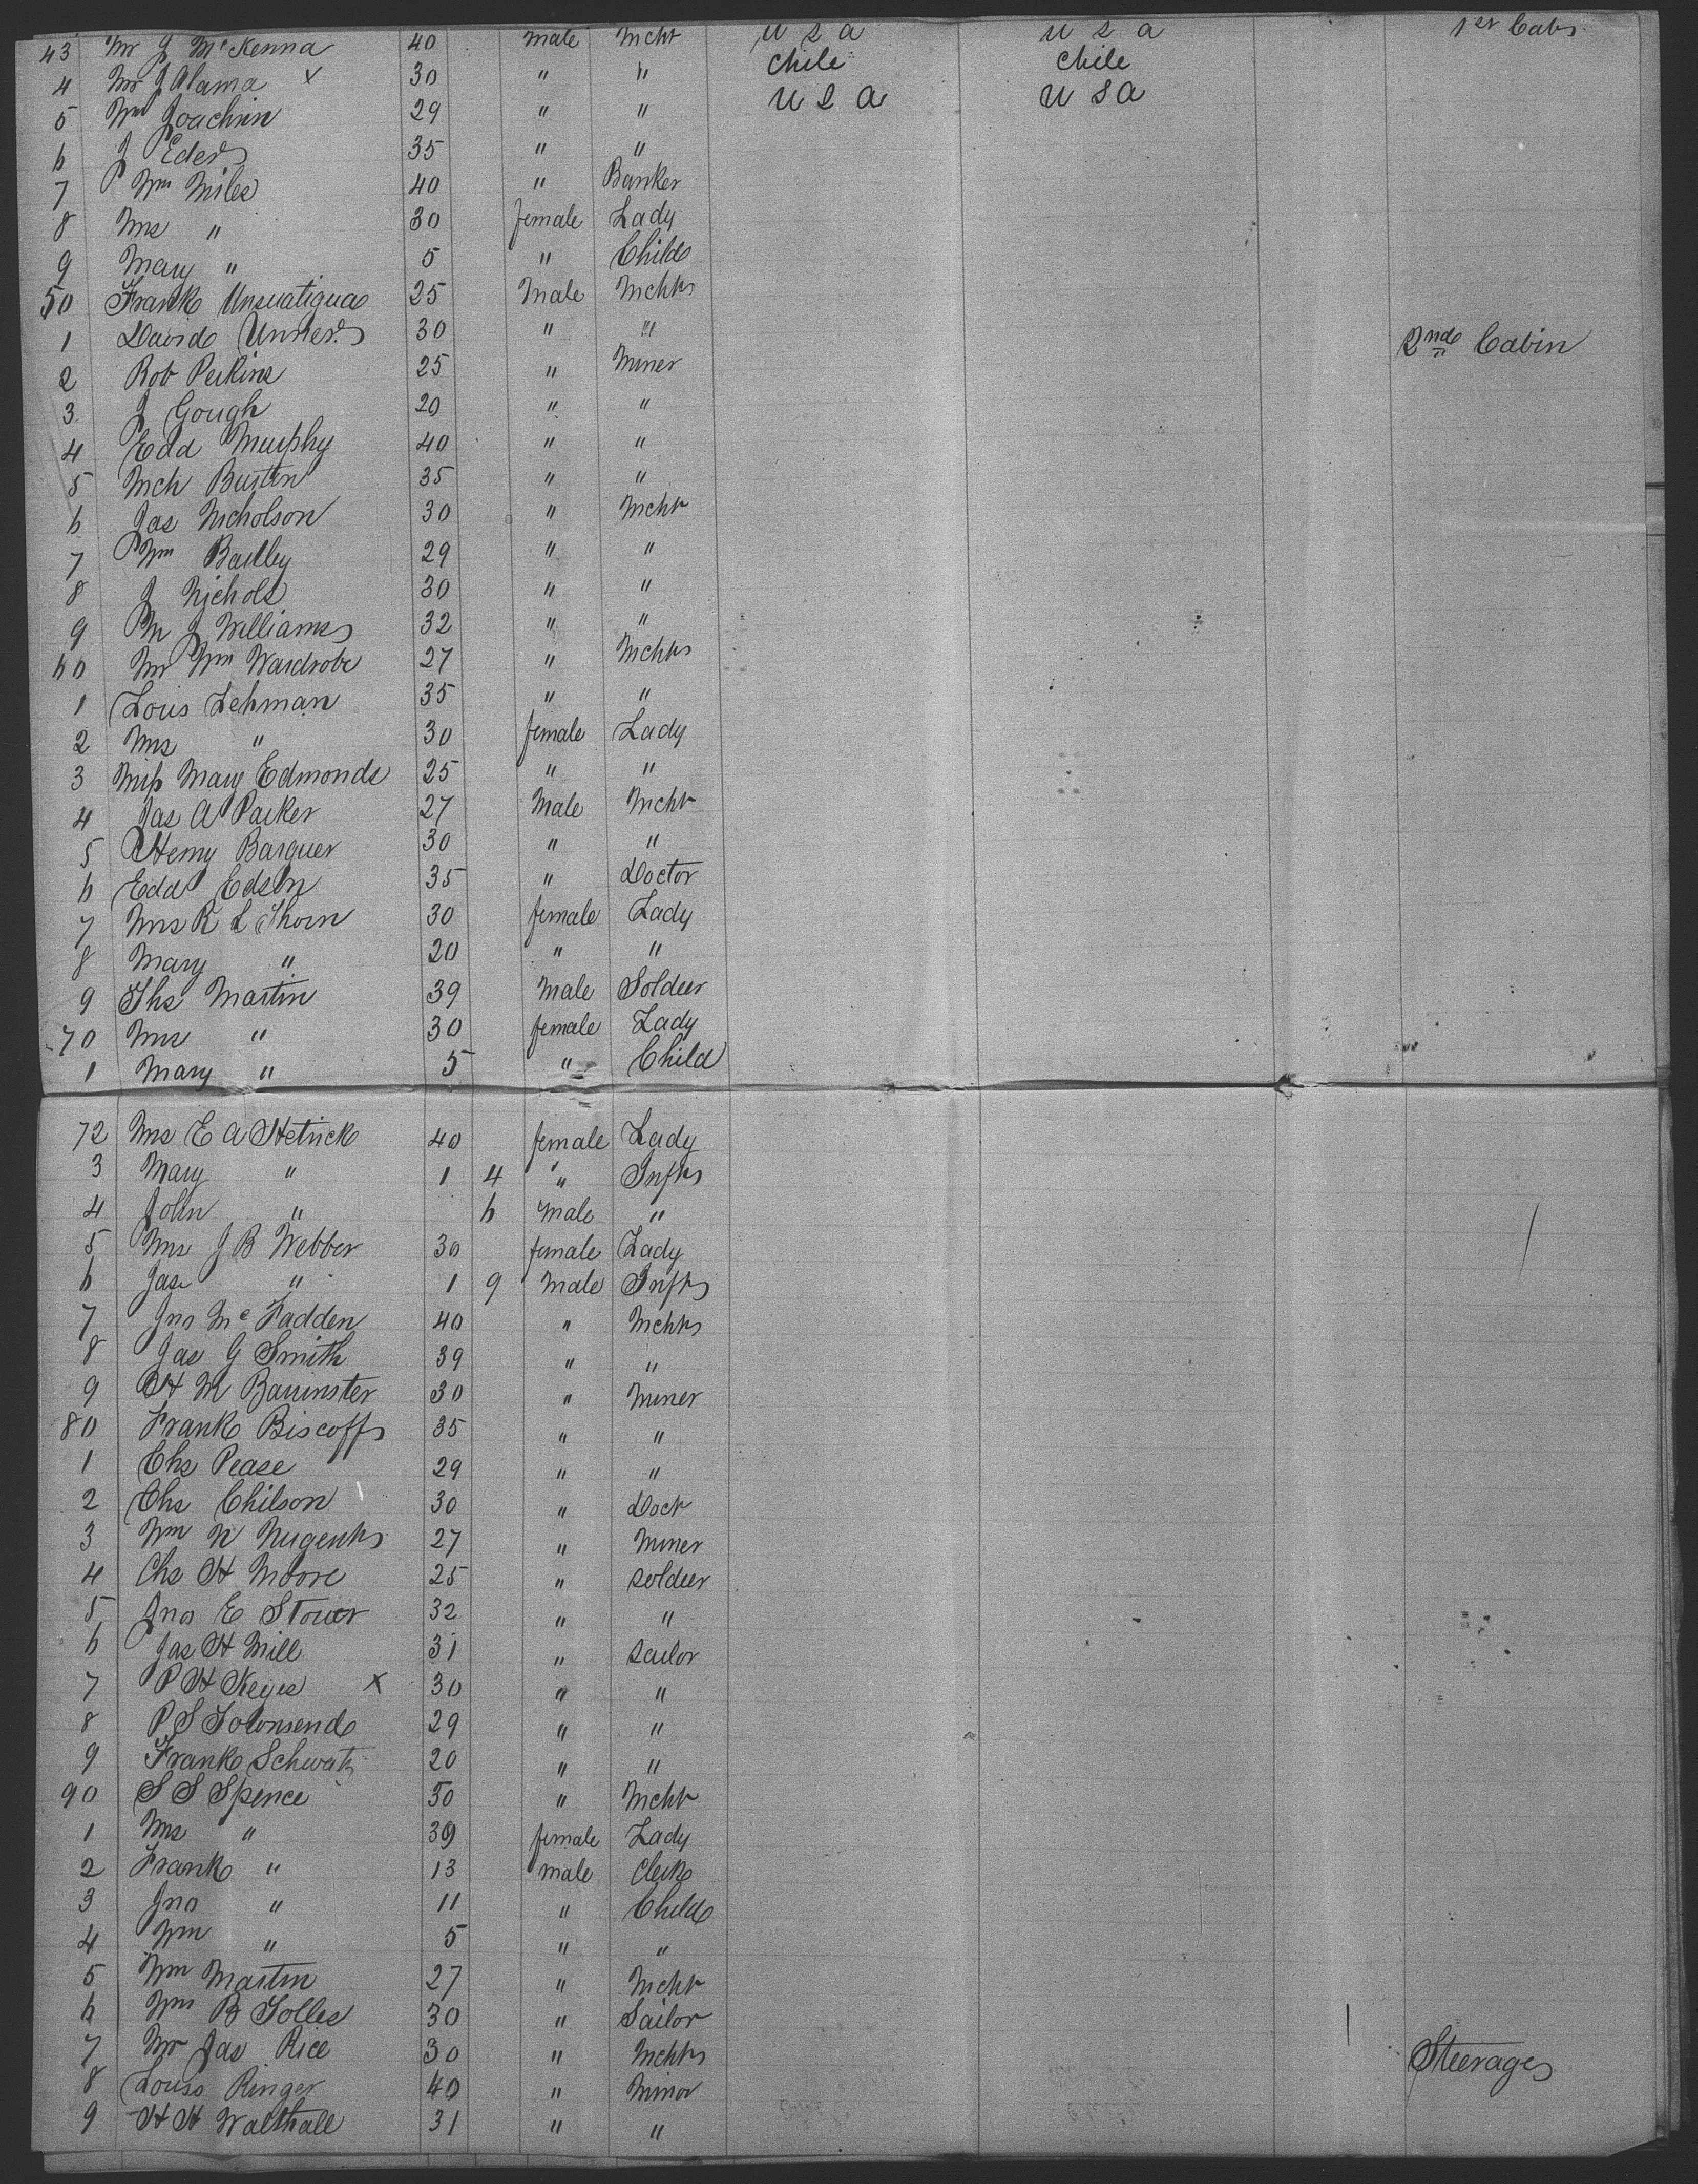 43 Mr J McKenna 40 male Mcht U S A U S A 1st Cabs
4 Mr J Alama x 30 " " Chile Chile
5 Wm Joachin 29 " " U S A U S A
6 J Eders 35 " "
7 Wm Miles 40 " Banker
8 Mrs " 30 female Lady
9 Mary " 5 " Child
50 Frank 25 Male Mcht
1 David 30 " " 2nd Cabin
2 Rob Perkins 25 " Miner
3 J Gough 20 " "
4 Edd Murphy 40 " "
5 Mch Bustin 35 " "
6 Jas Nicholson 30 " Mcht
7 Wm Bailley 29 " "
8 J Nichols 30 " "
9 M J Williams 32 " "
60 Mr Wm Wardrobe 27 " Mcht
1 Louis Lehman 35 " "
2 Mrs " 30 female Lady
3 Miss Mary Edmonds 25 " "
4 Jas A Parker 27 Male Mcht
5 Henry Barquer 30 " "
6 Edd Edson 35 " Doctor
7 Mrs R L Thorn 30 female Lady
8 Mary " 20 " "
9 Ths Martin 39 Male Soldier
70 Mrs " 30 female Lady
1 Mary " 5 " Child
72 Mrs E A Hetrick 40 female Lady
3 Mary " 1 4 " Inft
4 John " 6 Male "
5 Mrs J B Webber 30 female Lady
6 " 1 9 Male Inft
7 Jno McFadden 40 " Mcht
8 Jas G Smith 39 " "
9 H M Banninster 30 " Miner
80 Frank Biscoff 35 " "
1 Chs Pease 29 " "
2 Chs Chilson 30 " Doct
3 Wm N Nugent 27 " Miner
4 Chs H Moore 25 " soldier
5 Jno E Stower 32 " "
6 Jas H Mill 31 " sailor
7 P H Keyes x 30 " "
8 P S Townsend 29 " "
9 Frank Schwatz 20 " "
90 S S Spence 50 " Mcht
1 Mrs " 39 female Lady
2 Frank " 13 male Clerk
3 Jno " 11 " Child
4 Wm " 5 " "
5 Wm Martin 27 " Mcht
6 Wm B Tolles 30 " Sailor
7 Mr Jas Rice 30 " Mcht Steerage
8 Louis Ringer 40 " Minor
9 H H Walthall 31 " "